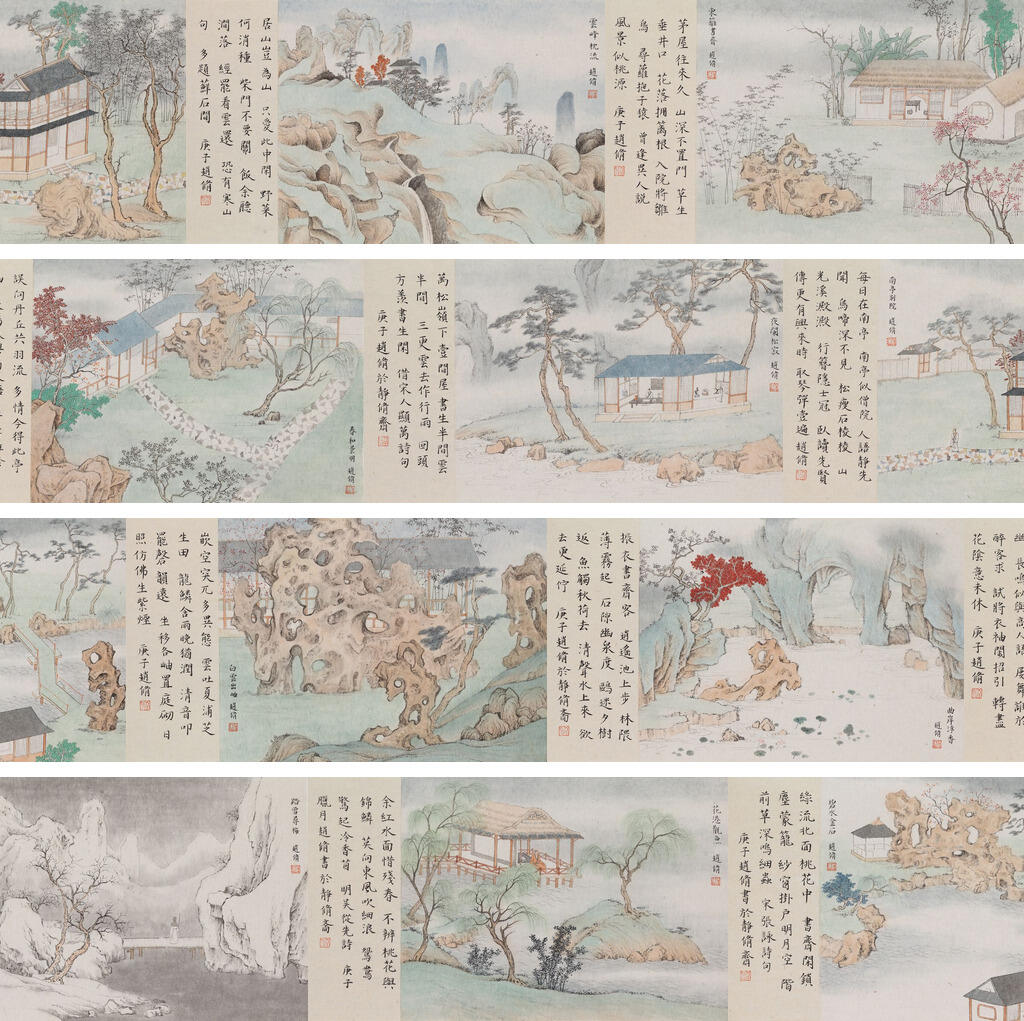 東籬書齋 趙脩
茅屋往來久 山深不置門 草生
垂井口 花落擁籬根 入院將雛
鳥 尋蘿抱子猿 曾逢異人說
風景似桃源 庚子趙脩
雲峰枕流 趙脩
居山豈為山 只愛此中閑 野菜
何消種 柴門不要關 飯余聽
澗落 經罷看雲還 恐有寒山
句 多題蘚石間 庚子趙脩
南亭別院 趙脩
每日在南亭 南亭似僧院 人語靜先
聞 鳥啼深不見 松瘦石棱棱 山
光溪澱澱 行簪隱士冠 臥讀先賢
傳 更有興來時 取琴彈壹遍 趙脩
夜闌松寂 趙脩
萬松嶺下壹間屋 書生半間雲
半間 三更雲去作行雨 回頭
方羨書生閑 借宋人顯萬詩句
庚子趙脩於靜脩齋
春和景明 趙脩
誤問丹丘六羽流 多情令得此亭
長鳴似與高人語 屢舞誰於
醉客求 試將衣袖閑招引 轉盡
花陰意未休 庚子趙脩
曲岸浮香 趙脩
振衣書齋客 逍遙池上步 林隈
薄霧起 石隙幽泉度 鷗迷夕樹
返 魚觸秋荷去 清聲水上來 欲
去更延佇 庚子趙脩於靜脩齋
白雲出岫 趙脩
嵌空突兀多異態 雲吐夏浦芝
生田 龍鱗含雨晚猶潤 清音叩
罷磬韻遠 坐移各岫置庭砌 日
照仿佛生紫煙 庚子趙脩
碧水金石 趙脩
綠流北面桃花中 書齋閑鎖
塵蒙籠 紗窗掛戶明月空 階
前草深鳴細蟲 宋張詠詩句
庚子趙脩書於靜脩齋
花港觀魚 趙脩
余紅水面惜殘春 不辨桃花與
錦鱗 莫向東風吹細浪 鴛鴦
驚起冷香茵 明吴從先詩 庚子
臘月趙脩書於靜脩齋
踏雪尋梅 趙脩